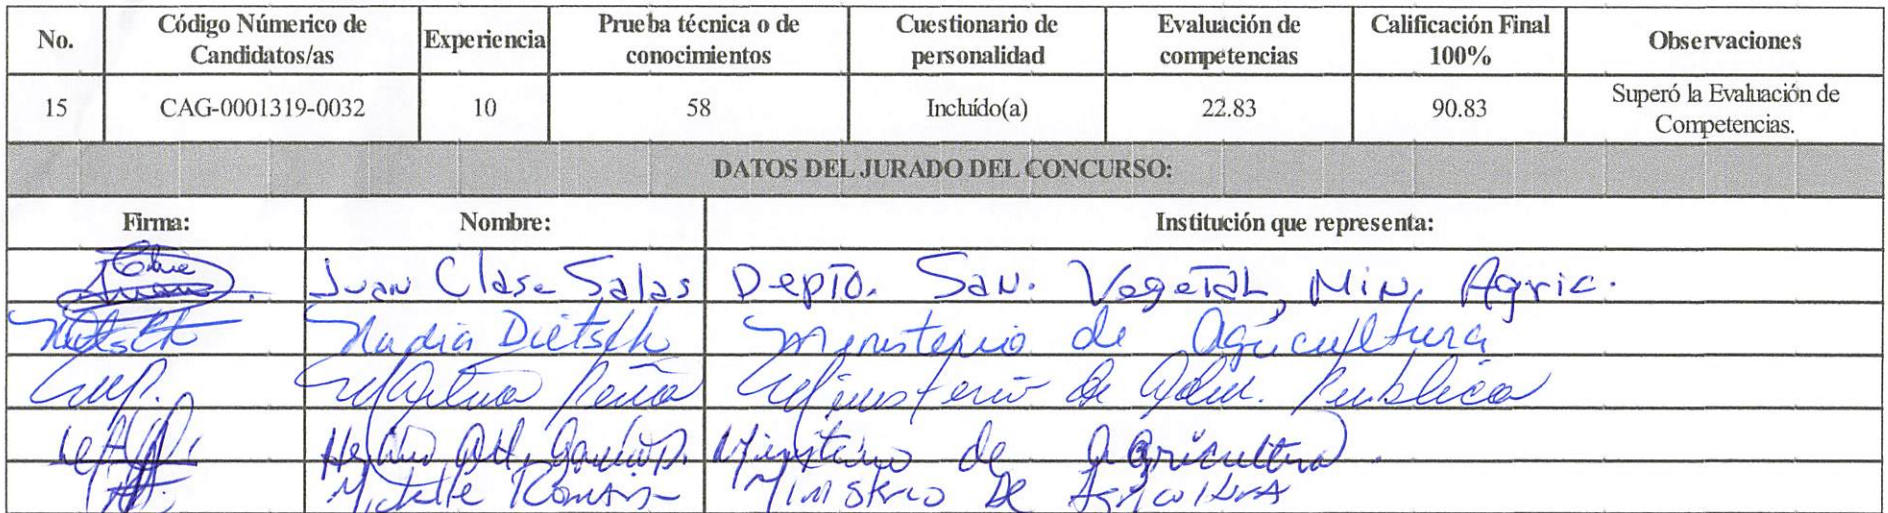 No. Código Númerico de Candidatos/as Experiencia Prueba técnica o de conocimientos Cuestionario de personalidad Evaluación de competencias Calificación Final 100% Observaciones
15 CAG-0001319-0032 10 58 Incluído(a) 22.83 90.83 Superó la Evaluación de Competencias.
DATOS DEL JURADO DEL CONCURSO:
Firma: Nombre: Institución que representa:
Juan Clase Salas Depto. San. Vegetal, Min. Agric.
Nadia Dietsch Ministerio de Agricultura
Peña Ministerio de Adm. Publica
Ministerio de Agricultura.
Ministerio De Agricultura